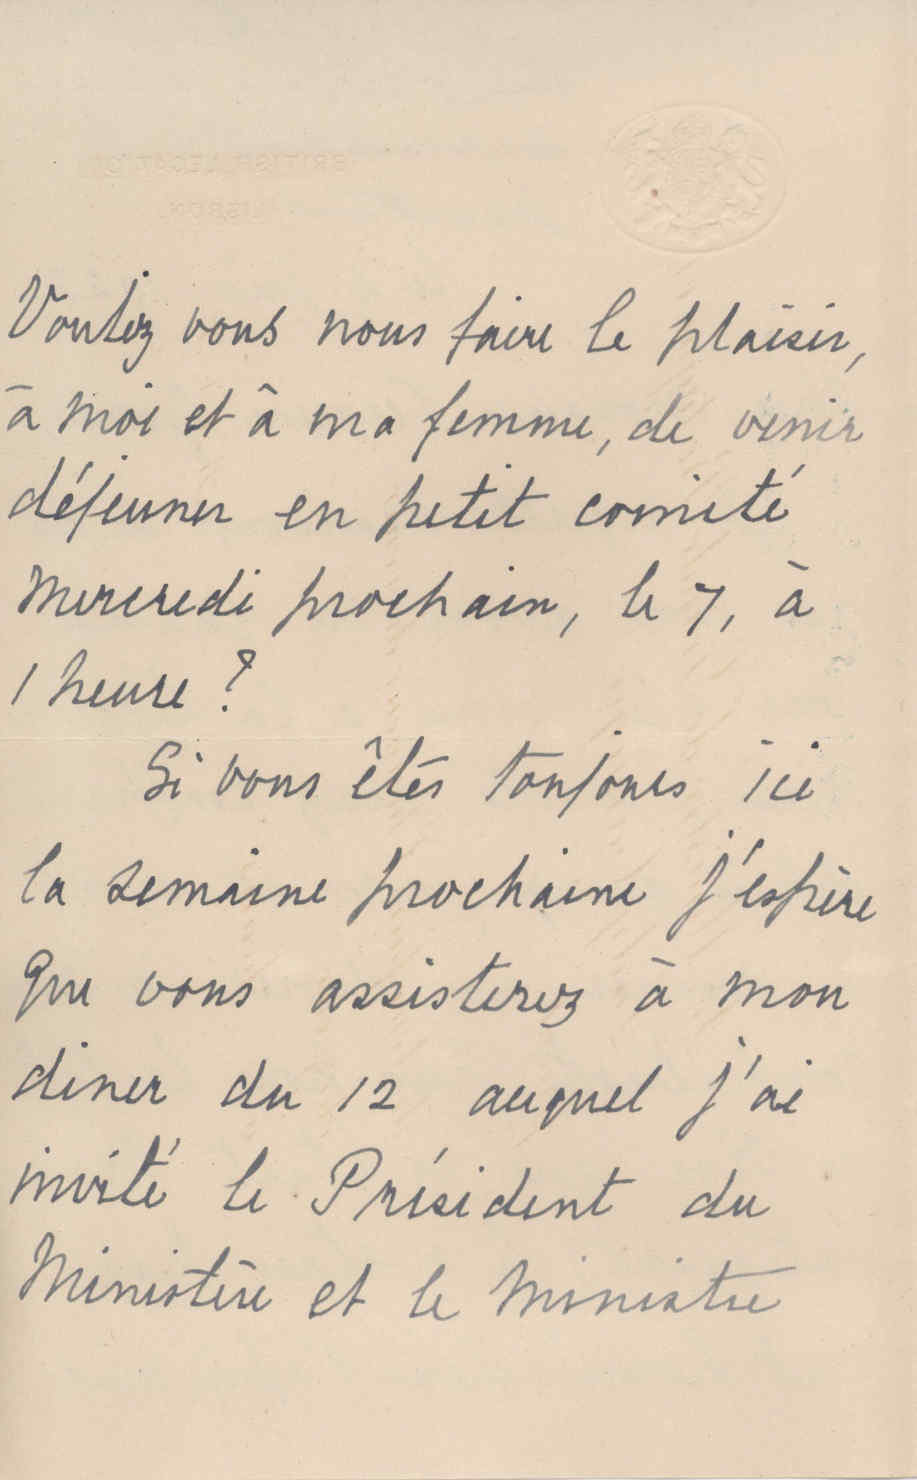 Voulez vous nous faire le plaisir,
à moi et à ma femme, de venir
déjeuner en petit comité
Mercredi prochain, le 7, à
1 heure ?
Si vous êtes toujours ici
la semaine prochaine j'espère
que vous assisterez à mon
diner du 12 auquel j'ai
invité le Président du
Ministère et le Ministre